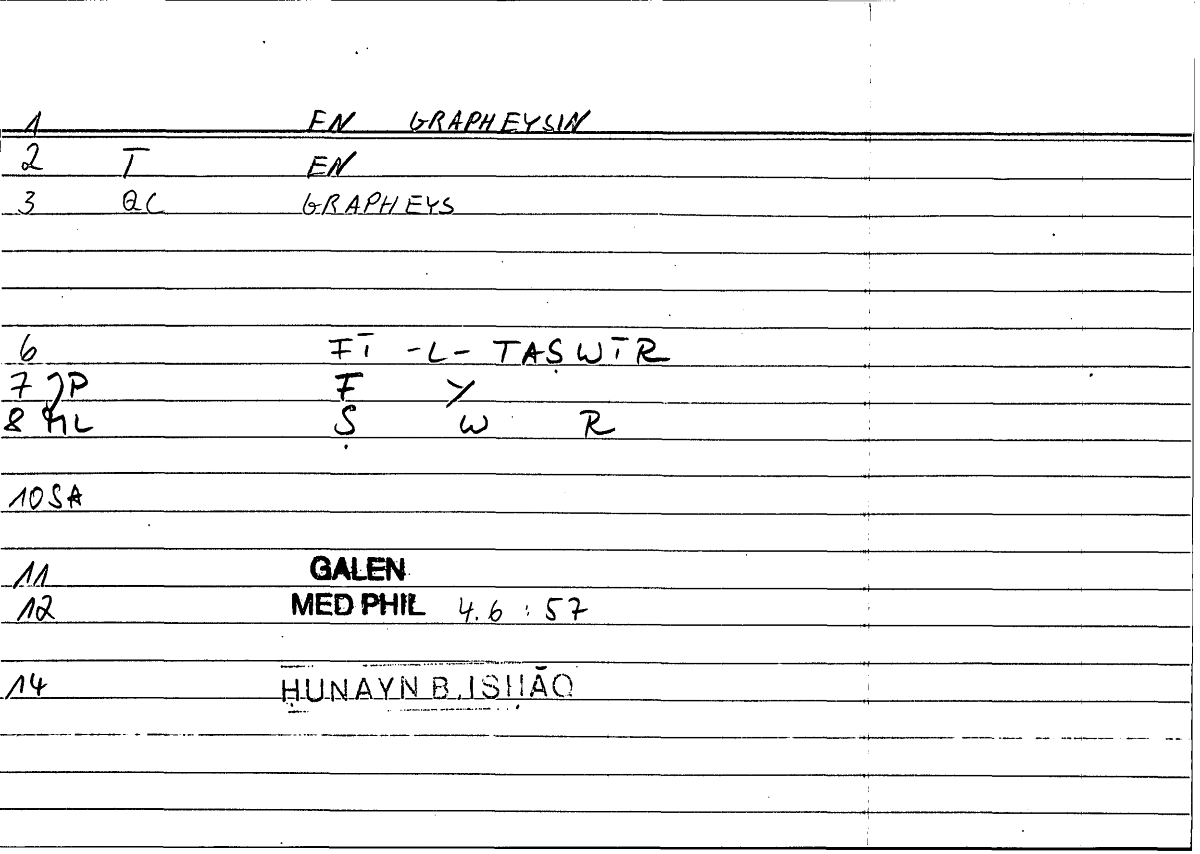 1 EN GRAPHEYSIN
2 T EN
3 QC GRAPHEYS
6 FĪ -L- TAṢWĪR
7 JP F Y
8 ML Ṣ W R
10 SA
11 GALEN
12 MED PHIL 4.6 : 57
14 ḤUNAYN B. ISḤĀQ